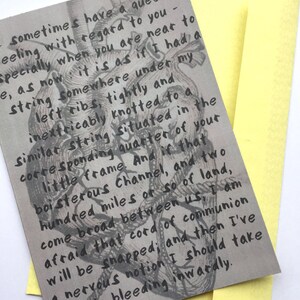 sometimes have a quee
eeling with regard to you -
specially when you are near to
e, as now: it is as if I had a
string somewhere under my
left ribs, tightly and
inextricably knotted to a
similar string situated in the
corresponding quarter of your
little frame. And if that
boisterous Channel, and two
hundred miles or so of land,
come broad between us, I am
afraid that cord of communion
will be snapped; and then I've
a nervous notion I should take
bleeding inwardly.